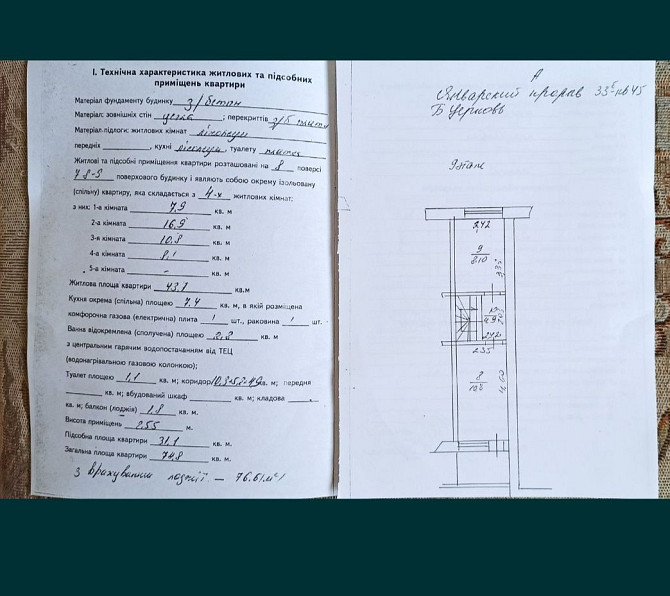 I. Технічна характеристика житлових та підсобних
приміщень квартири
Матеріал фундаменту будинку з/бетон
Матеріал: зовнішніх стін цегла ; перекриттів з/б плити
Матеріал підлоги: житлових кімнат лінолеум
передніх , кухні лінолеум, туалету плитка
Житлові та підсобні приміщення квартири розташовані на 8 поверсі
78-9 поверхового будинку і являють собою окрему ізольовану
(спільну) квартиру, яка складається з 4-х житлових кімнат:
з них: 1-а кімната 7,9 кв. м
2-а кімната 16,9 кв. м
3-я кімната 10,8 кв. м
4-а кімната 8,1 кв. м
5-а кімната - кв. м
Житлова площа квартири 43,7 кв.м
Кухня окрема (спільна) площею 7,4 кв. м, в якій розміщена
комфорочна газова (електрична) плита 1 шт., раковина 1 шт.
Ванна відокремлена (сполучена) площею кв. м
з центральним гарячим водопостачанням від ТЕЦ
(водонагрівальною газовою колонкою);
Туалет площею 1,1 кв. м; коридор кв. м; передня
кв. м; вбудований шкаф кв. м; кладова
кв. м; балкон (лоджія) 1,8 кв. м.
Висота приміщень 2.55 м.
Підсобна площа квартири 31,1 кв. м.
Загальна площа квартири 74,8 кв. м.
з врахуванням лоджії — 76.6 м²
А
Январский прорыв 33б-кв45
Б Церковь
9этаж
242
9
8.10
335
4.9
242
235
8
10.8
4.60